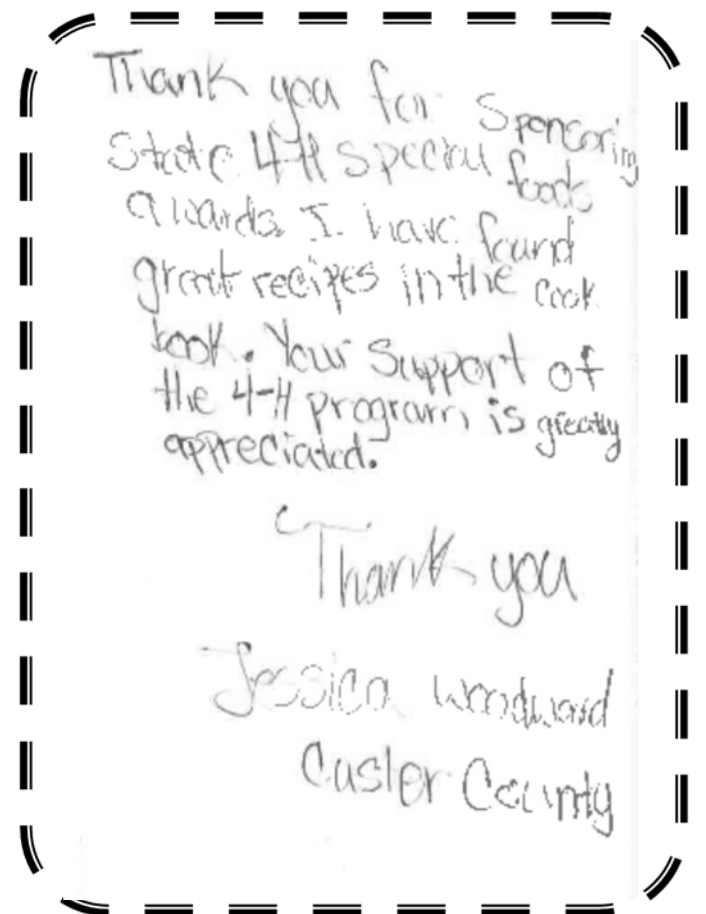 Thank you for sponsoring
State 4-H special foods
awards I have found
great recipes in the cook
book. Your Support of
the 4-H program is greatly
appreciated.
Thank you
Jessica Woodward
Custer County